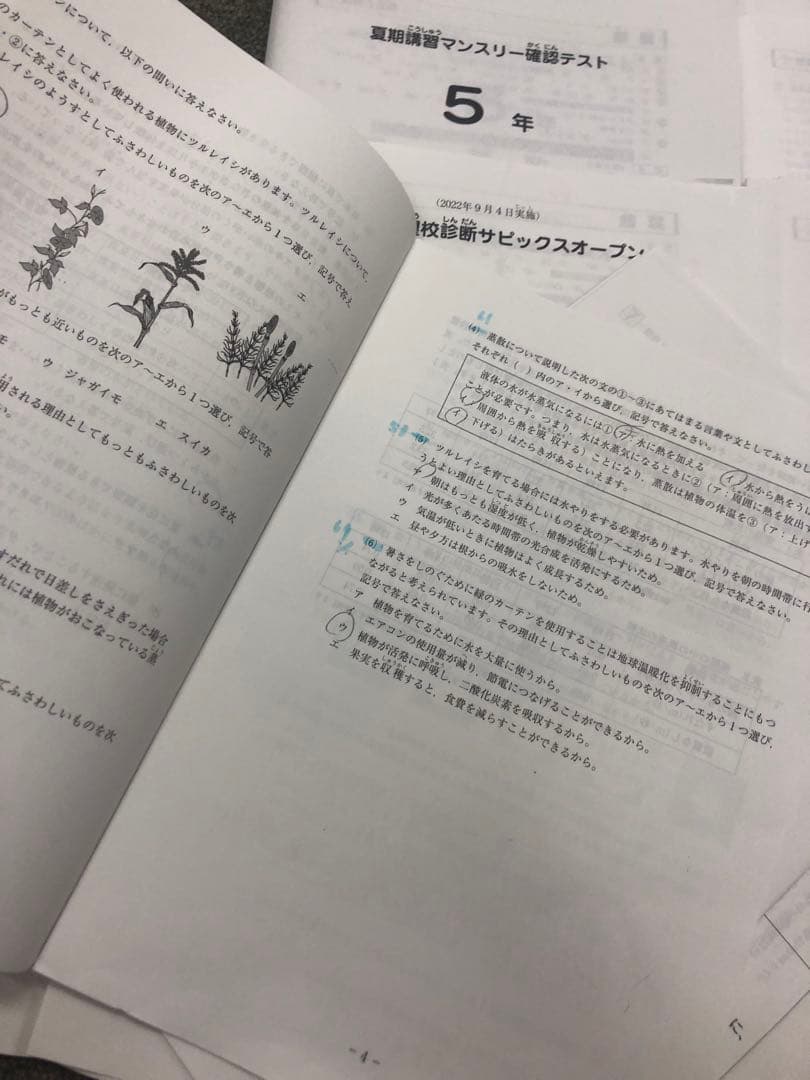 夏期講習マンスリー確認テスト
5年
(2022年9月4日実施)
校診断サピックスオープン
ンについて、以下の問いに答えなさい。
のカーテンとしてよく使われる植物にツルレイシがあります。ツルレイシについて、
・②に答えなさい。
レイシのようすとしてふさわしいものを次のア〜エから1つ選び、記号で答え
イ
ウ
エ
がもっとも近いものを次のア〜エから1つ選び、記号で答
モ ウ ジャガイモ エ スイカ
用される理由としてもっともふさわしいものを次
い。
すだれで日差しをさえぎった場合
れには植物がおこなっている蒸
てふさわしいものを次
(4) 蒸散について説明した次の文の①〜③にあてはまる言葉や文としてふさわし
それぞれ( )内のア・イから選び、記号で答えなさい。
液体の水が水蒸気になるには①(ア:水に熱を加える イ:水から熱をうば
ことが必要です。つまり、水は水蒸気になるときに②(ア:周囲に熱を放出す
イ:周囲から熱を吸収する)ことになり、蒸散は植物の体温を③(ア:上げ
イ:下げる)はたらきがあるといえます。
(5) ツルレイシを育てる場合には水やりをする必要があります。水やりを朝の時間帯に行
うとよい理由としてふさわしいものを次のア〜エから1つ選び、記号で答えなさい。
ア 朝はもっとも湿度が低く、植物が乾燥しやすいため。
イ 光が多くあたる時間帯の光合成を活発にするため。
ウ 気温が低いときに植物はよく成長するため。
エ 昼や夕方は根からの吸水をしないため。
(6) 暑さをしのぐために緑のカーテンを使用することは地球温暖化を抑制することにもつ
ながると考えられています。その理由としてふさわしいものを次のア〜エから1つ選び、
記号で答えなさい。
ア 植物を育てるために水を大量に使うから。
イ エアコンの使用量が減り、節電につなげることができるから。
ウ 植物が活発に呼吸し、二酸化炭素を吸収するから。
エ 果実を収穫すると、食費を減らすことができるから。
-4-